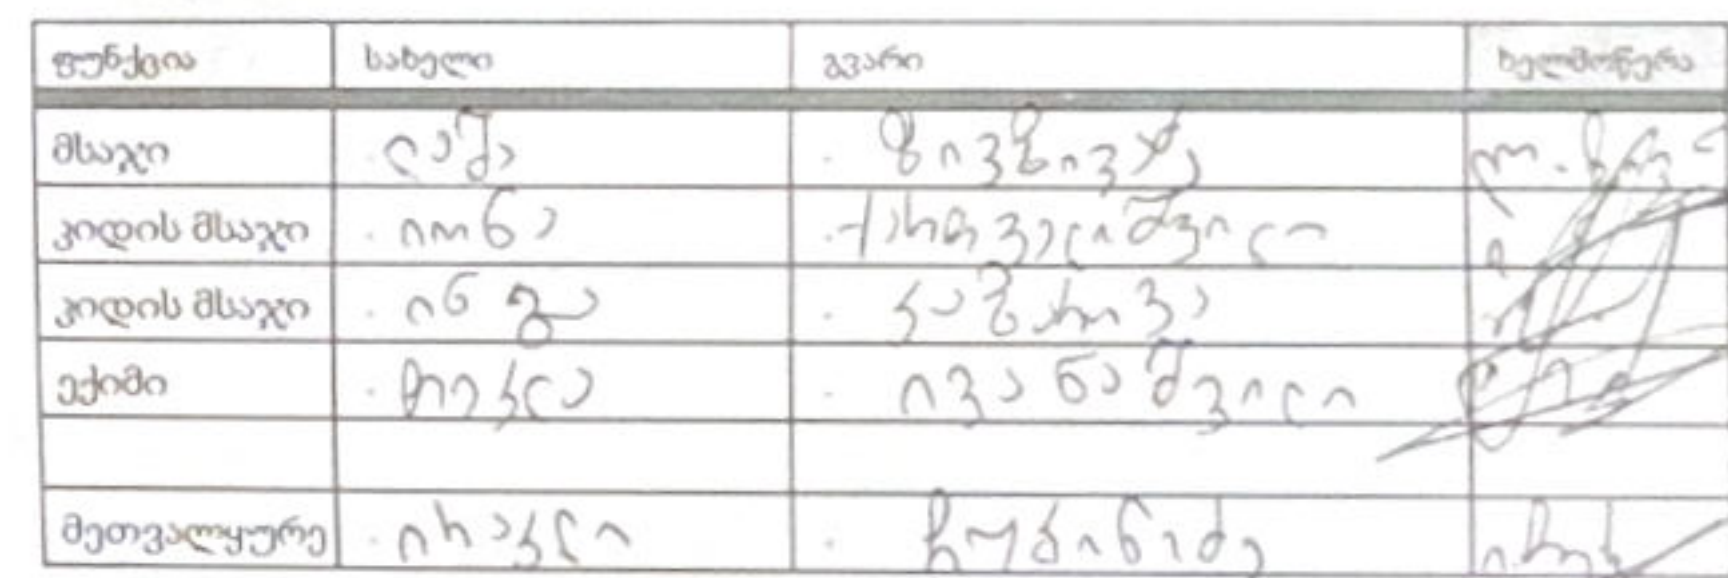 ფუნქცია სახელი გვარი ხელმოწერა
მსაჯი ლაშა ზივზივაძე
გვერდის მსაჯი იონა ქართველიშვილი
გვერდის მსაჯი ინგა კაზაროვა
ექიმი თეკლა ივანაშვილი
მეთვალყურე ირაკლი ჩუბინიძე